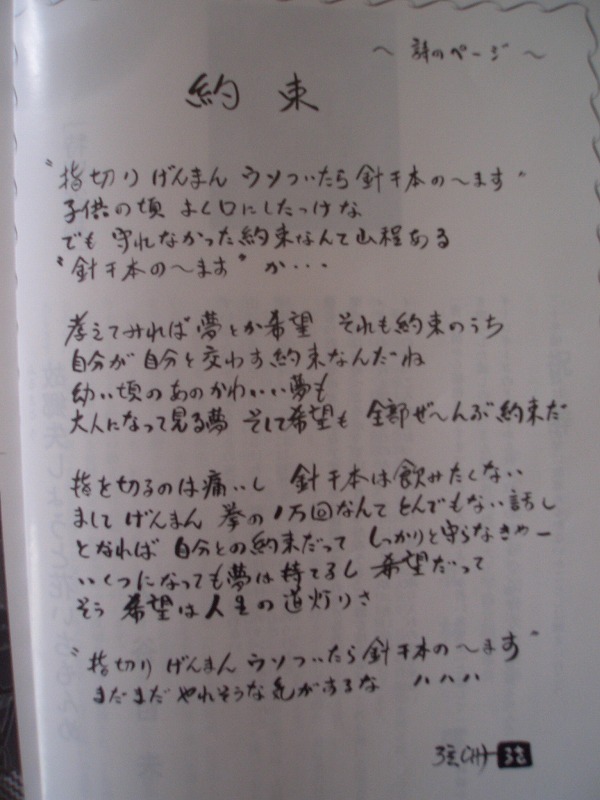 ～ 詩のページ ～
約束
"指切り げんまん ウソついたら 針千本の～ます"
子供の頃 よく口にしたっけな
でも 守れなかった約束なんて山程ある
"針千本の～ます" か・・・
考えてみれば 夢とか希望 それも約束のうち
自分が自分と交わす約束なんだね
幼い頃のあのかわいい夢も
大人になって見る夢 そして希望も 全部ぜ～んぶ約束だ
指を切るのは痛いし 針千本は飲みたくない
まして げんまん 拳の1万回なんて とんでもない話し
となれば 自分との約束だって しっかりと守らなきゃー
いくつになっても夢は持てるし 希望だって
そう 希望は人生の道灯りさ
"指切り げんまん ウソついたら 針千本の～ます"
まだまだ やれそうな気がするな ハハハ